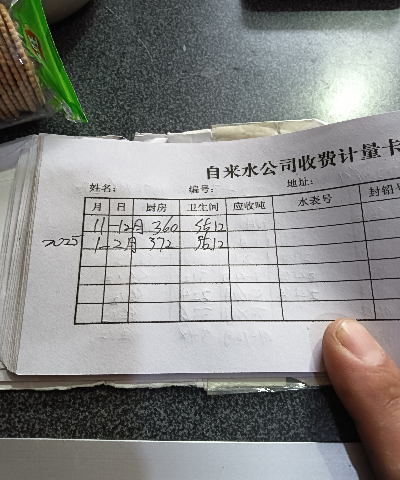 自来水公司收费计量卡
姓名: 编号: 地址:
月 日 厨房 卫生间 应收吨 水表号 封铅号
11-12月 360 12
2025 1-2月 372 12